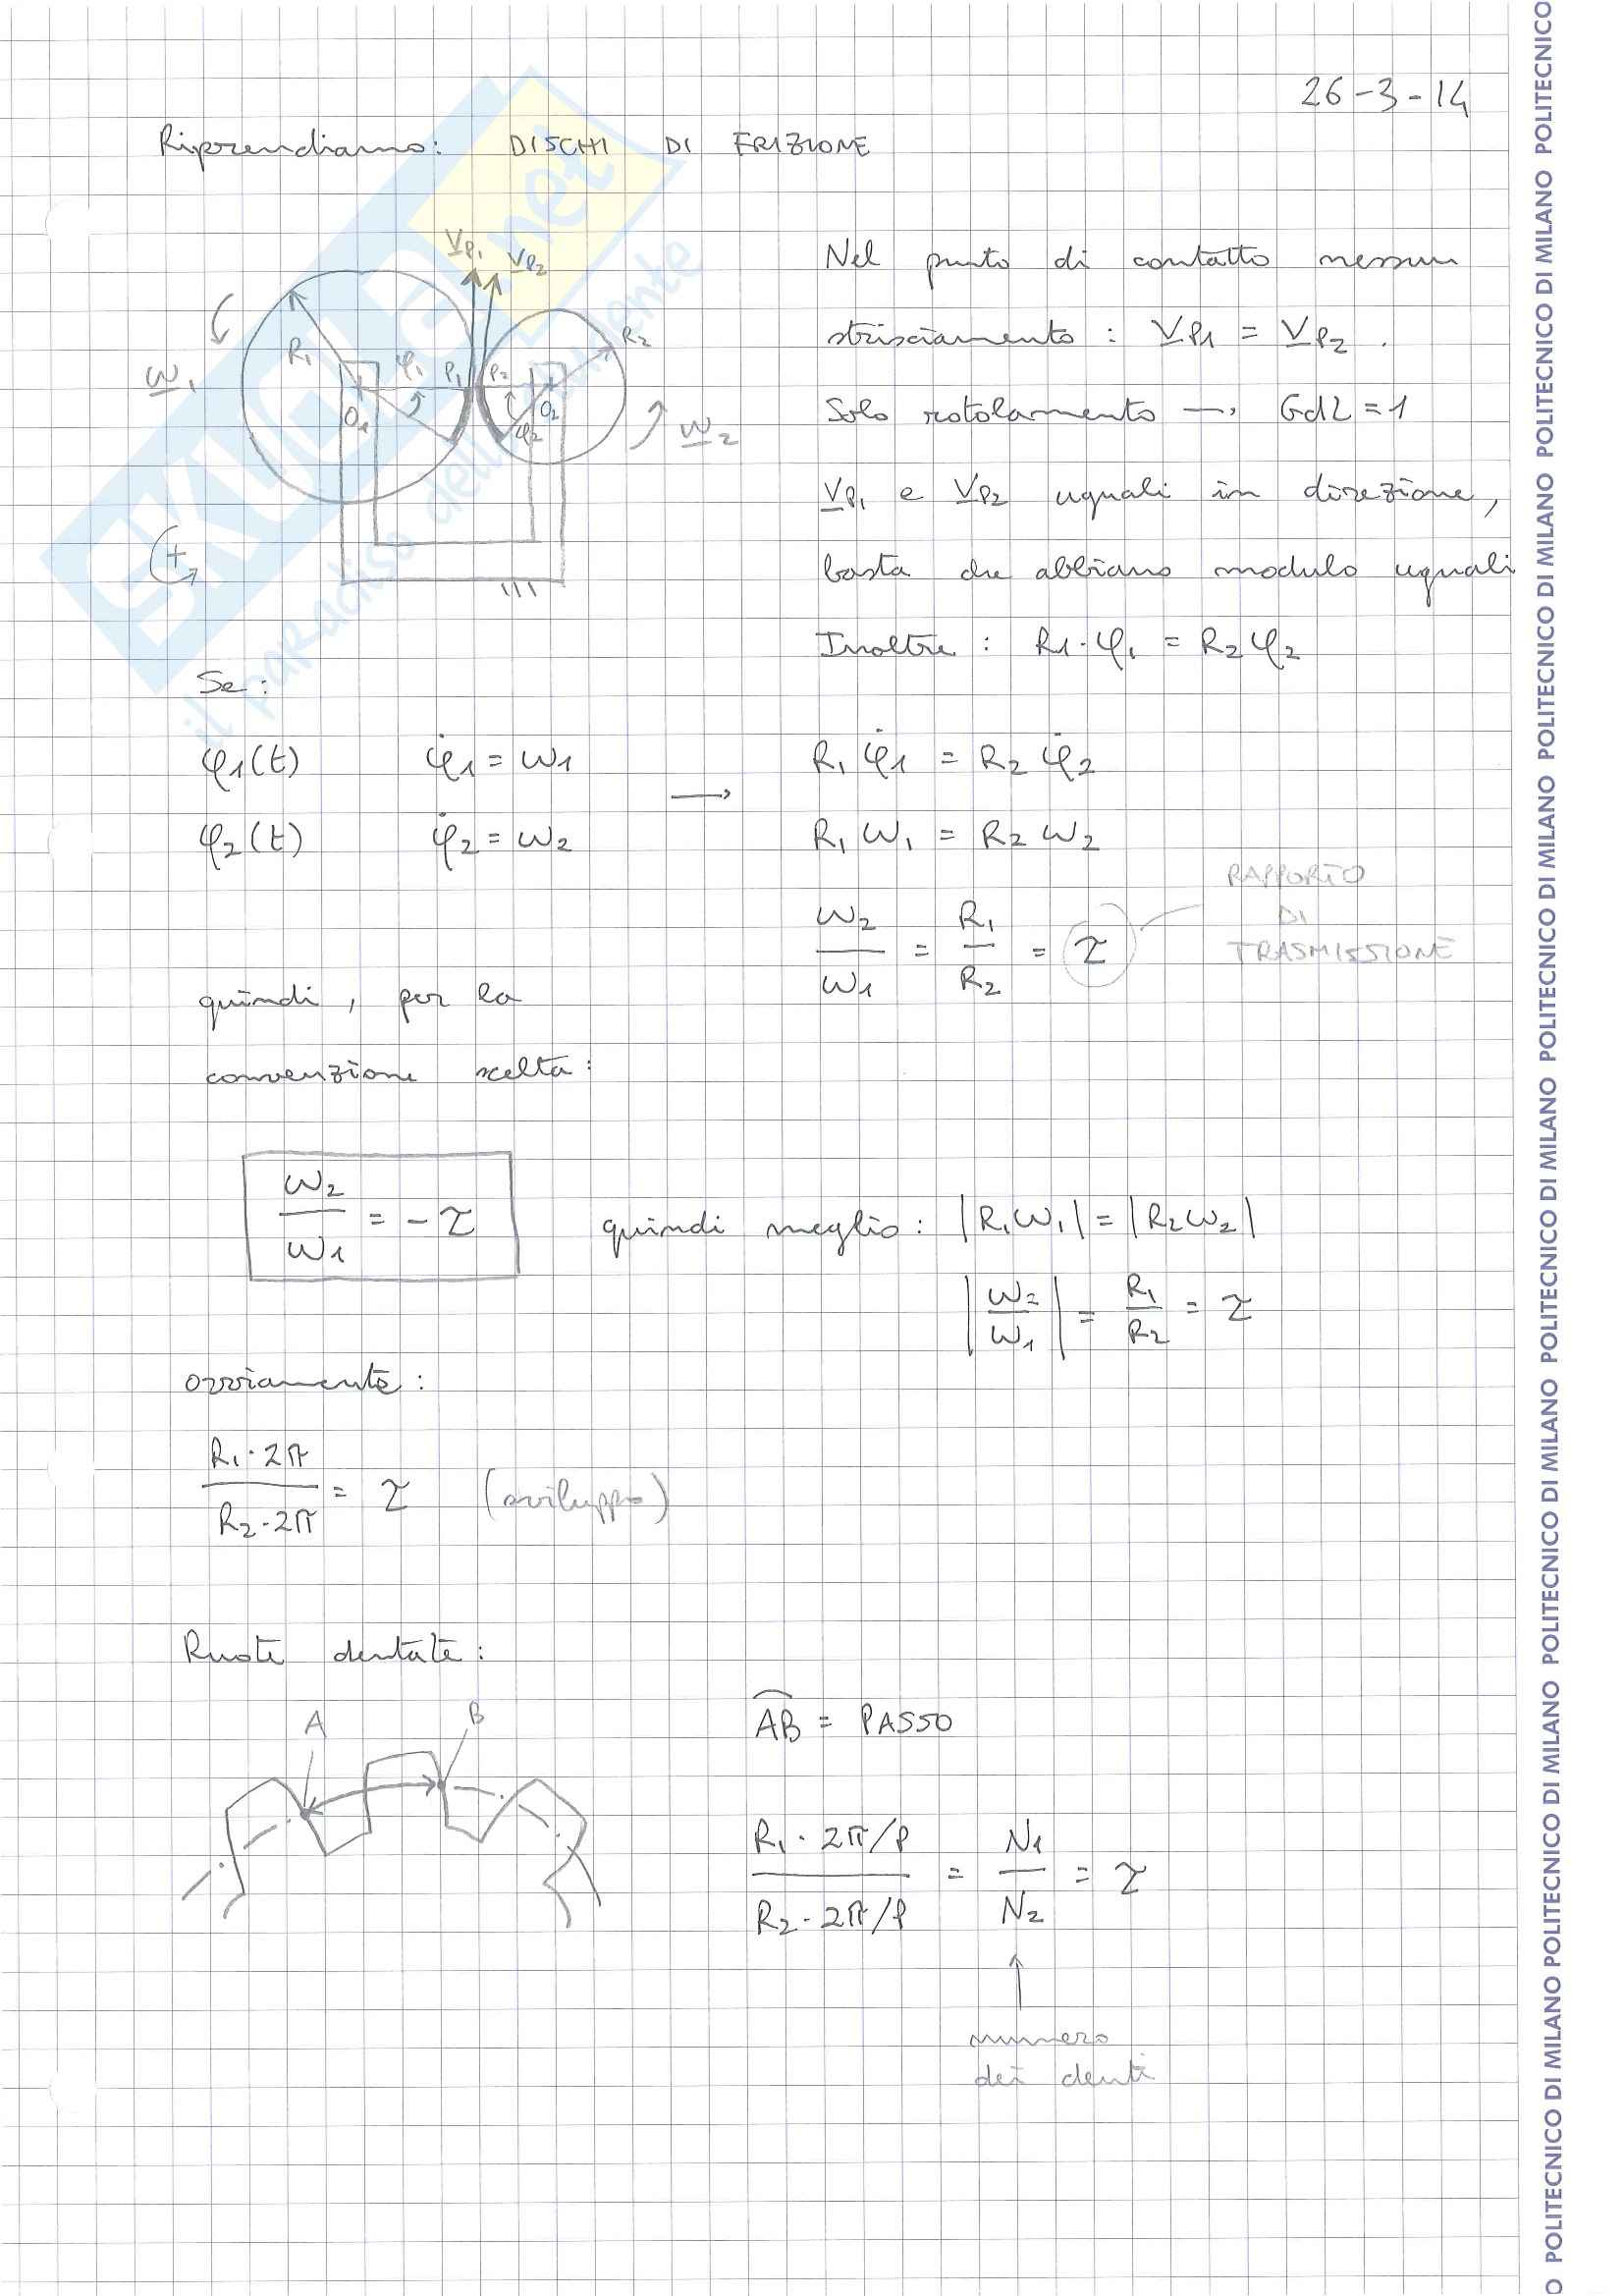 26-3-14
Riprendiamo: DISCHI DI FRIZIONE
V_P1 V_P2
R1 φ1 P1 P2 R2
ω1 O1 O2 φ2 ω2
+
Nel punto di contatto nessun
strisciamento : V_P1 = V_P2 .
Solo rotolamento → GdL = 1
V_P1 e V_P2 uguali in direzione,
basta che abbiano modulo uguali
Inoltre : R1·φ1 = R2 φ2
Se:
φ1(t) φ̇1 = ω1 → R1 φ̇1 = R2 φ̇2
φ2(t) φ̇2 = ω2 R1 ω1 = R2 ω2
ω2/ω1 = R1/R2 = τ
RAPPORTO
DI
TRASMISSIONE
quindi, per la
convenzione scelta:
ω2/ω1 = -τ quindi meglio: |R1ω1| = |R2ω2|
|ω2/ω1| = R1/R2 = τ
ovviamente:
R1·2π/R2·2π = τ (sviluppo)
Ruote dentate:
A B
AB = PASSO
R1·2π/P / R2·2π/P = N1/N2 = τ
numero
dei denti
SKUOLA.net
il paradiso dello studente
POLITECNICO DI MILANO POLITECNICO DI MILANO POLITECNICO DI MILANO POLITECNICO DI MILANO POLITECNICO DI MILANO POLITECNICO DI MILANO POLITECNICO DI MILANO POLITECNICO